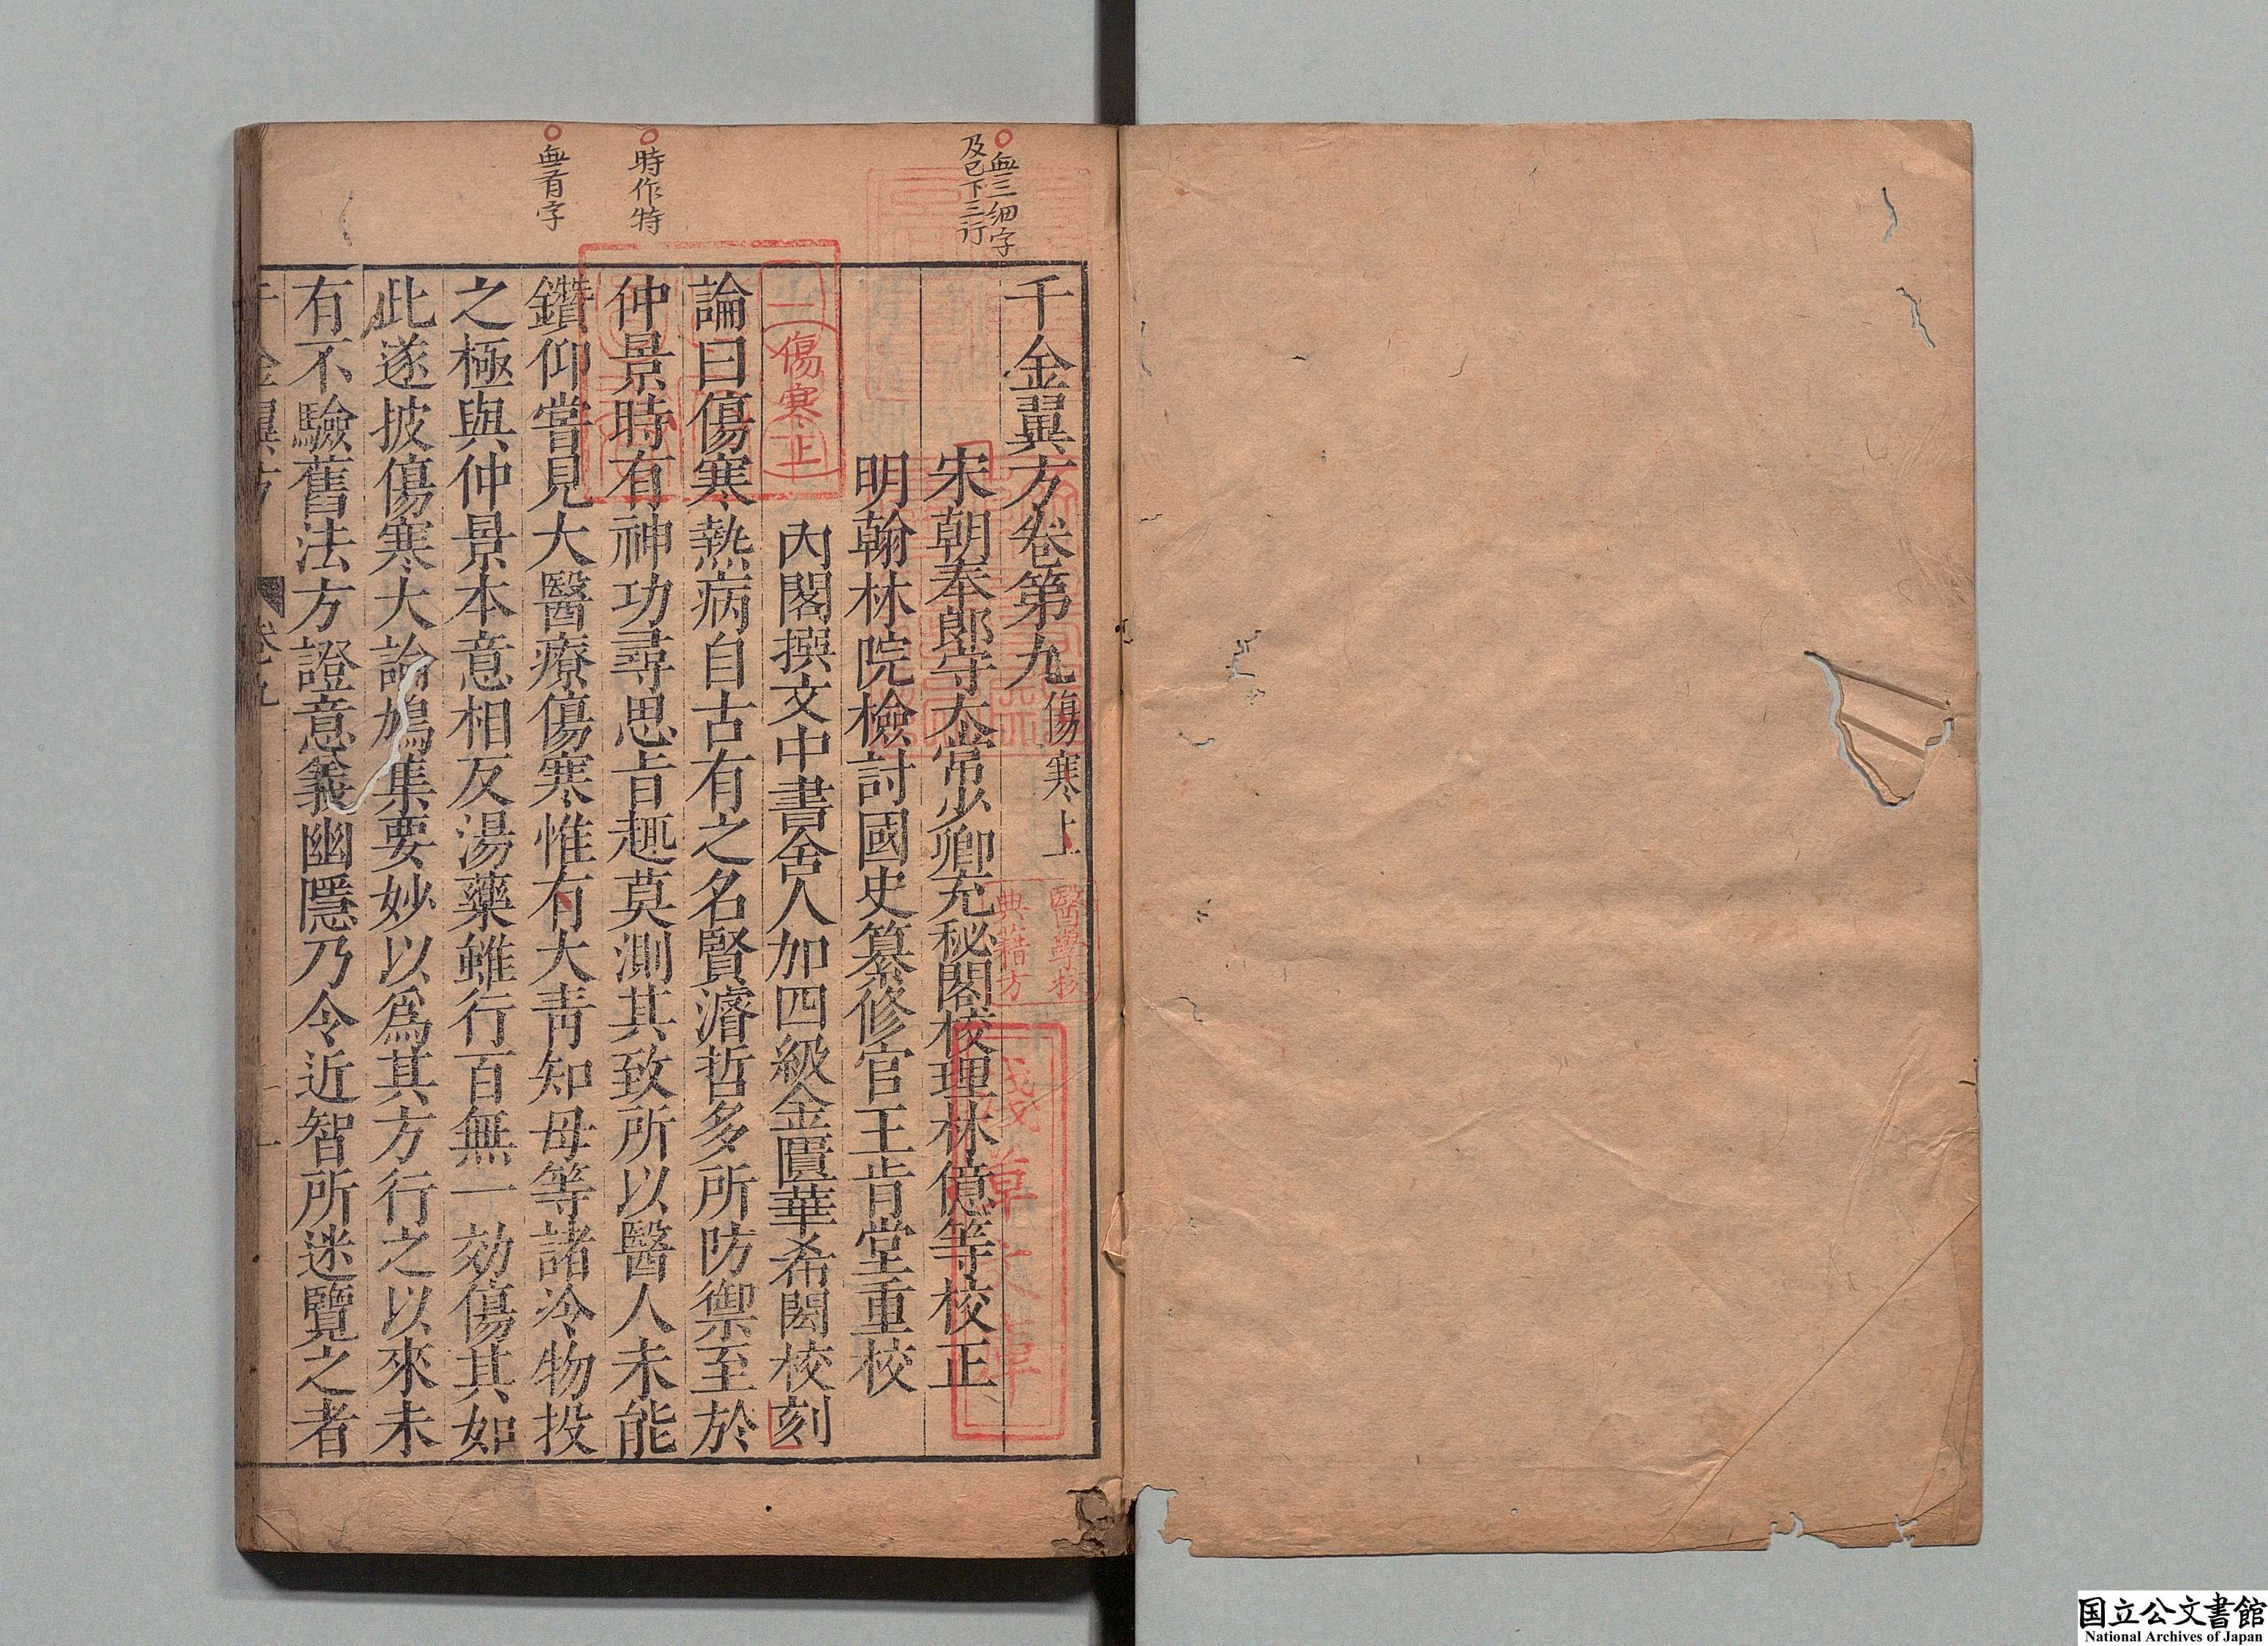 無三細字
及已下三行
時作特
無有字
千金翼方卷第九傷寒上
宋朝奉郎守太常少卿充秘閣校理林億等校正
明翰林院檢討國史纂修官王肯堂重校
內閣撰文中書舍人加四級金匱華希閎校刻
傷寒上
論曰傷寒熱病自古有之名賢濬哲多所防禦至於
仲景時有神功尋思旨趣莫測其致所以醫人未能
鑽仰嘗見大醫療傷寒惟有大青知母等諸冷物投
之極與仲景本意相反湯藥雖行百無一効傷其如
此遂披傷寒大論鳩集要妙以爲其方行之以來未
有不驗舊法方證意義幽隱乃令近智所迷覽之者
千金翼方 卷九 一
醫學校
典籍方
国立公文書館
National Archives of Japan